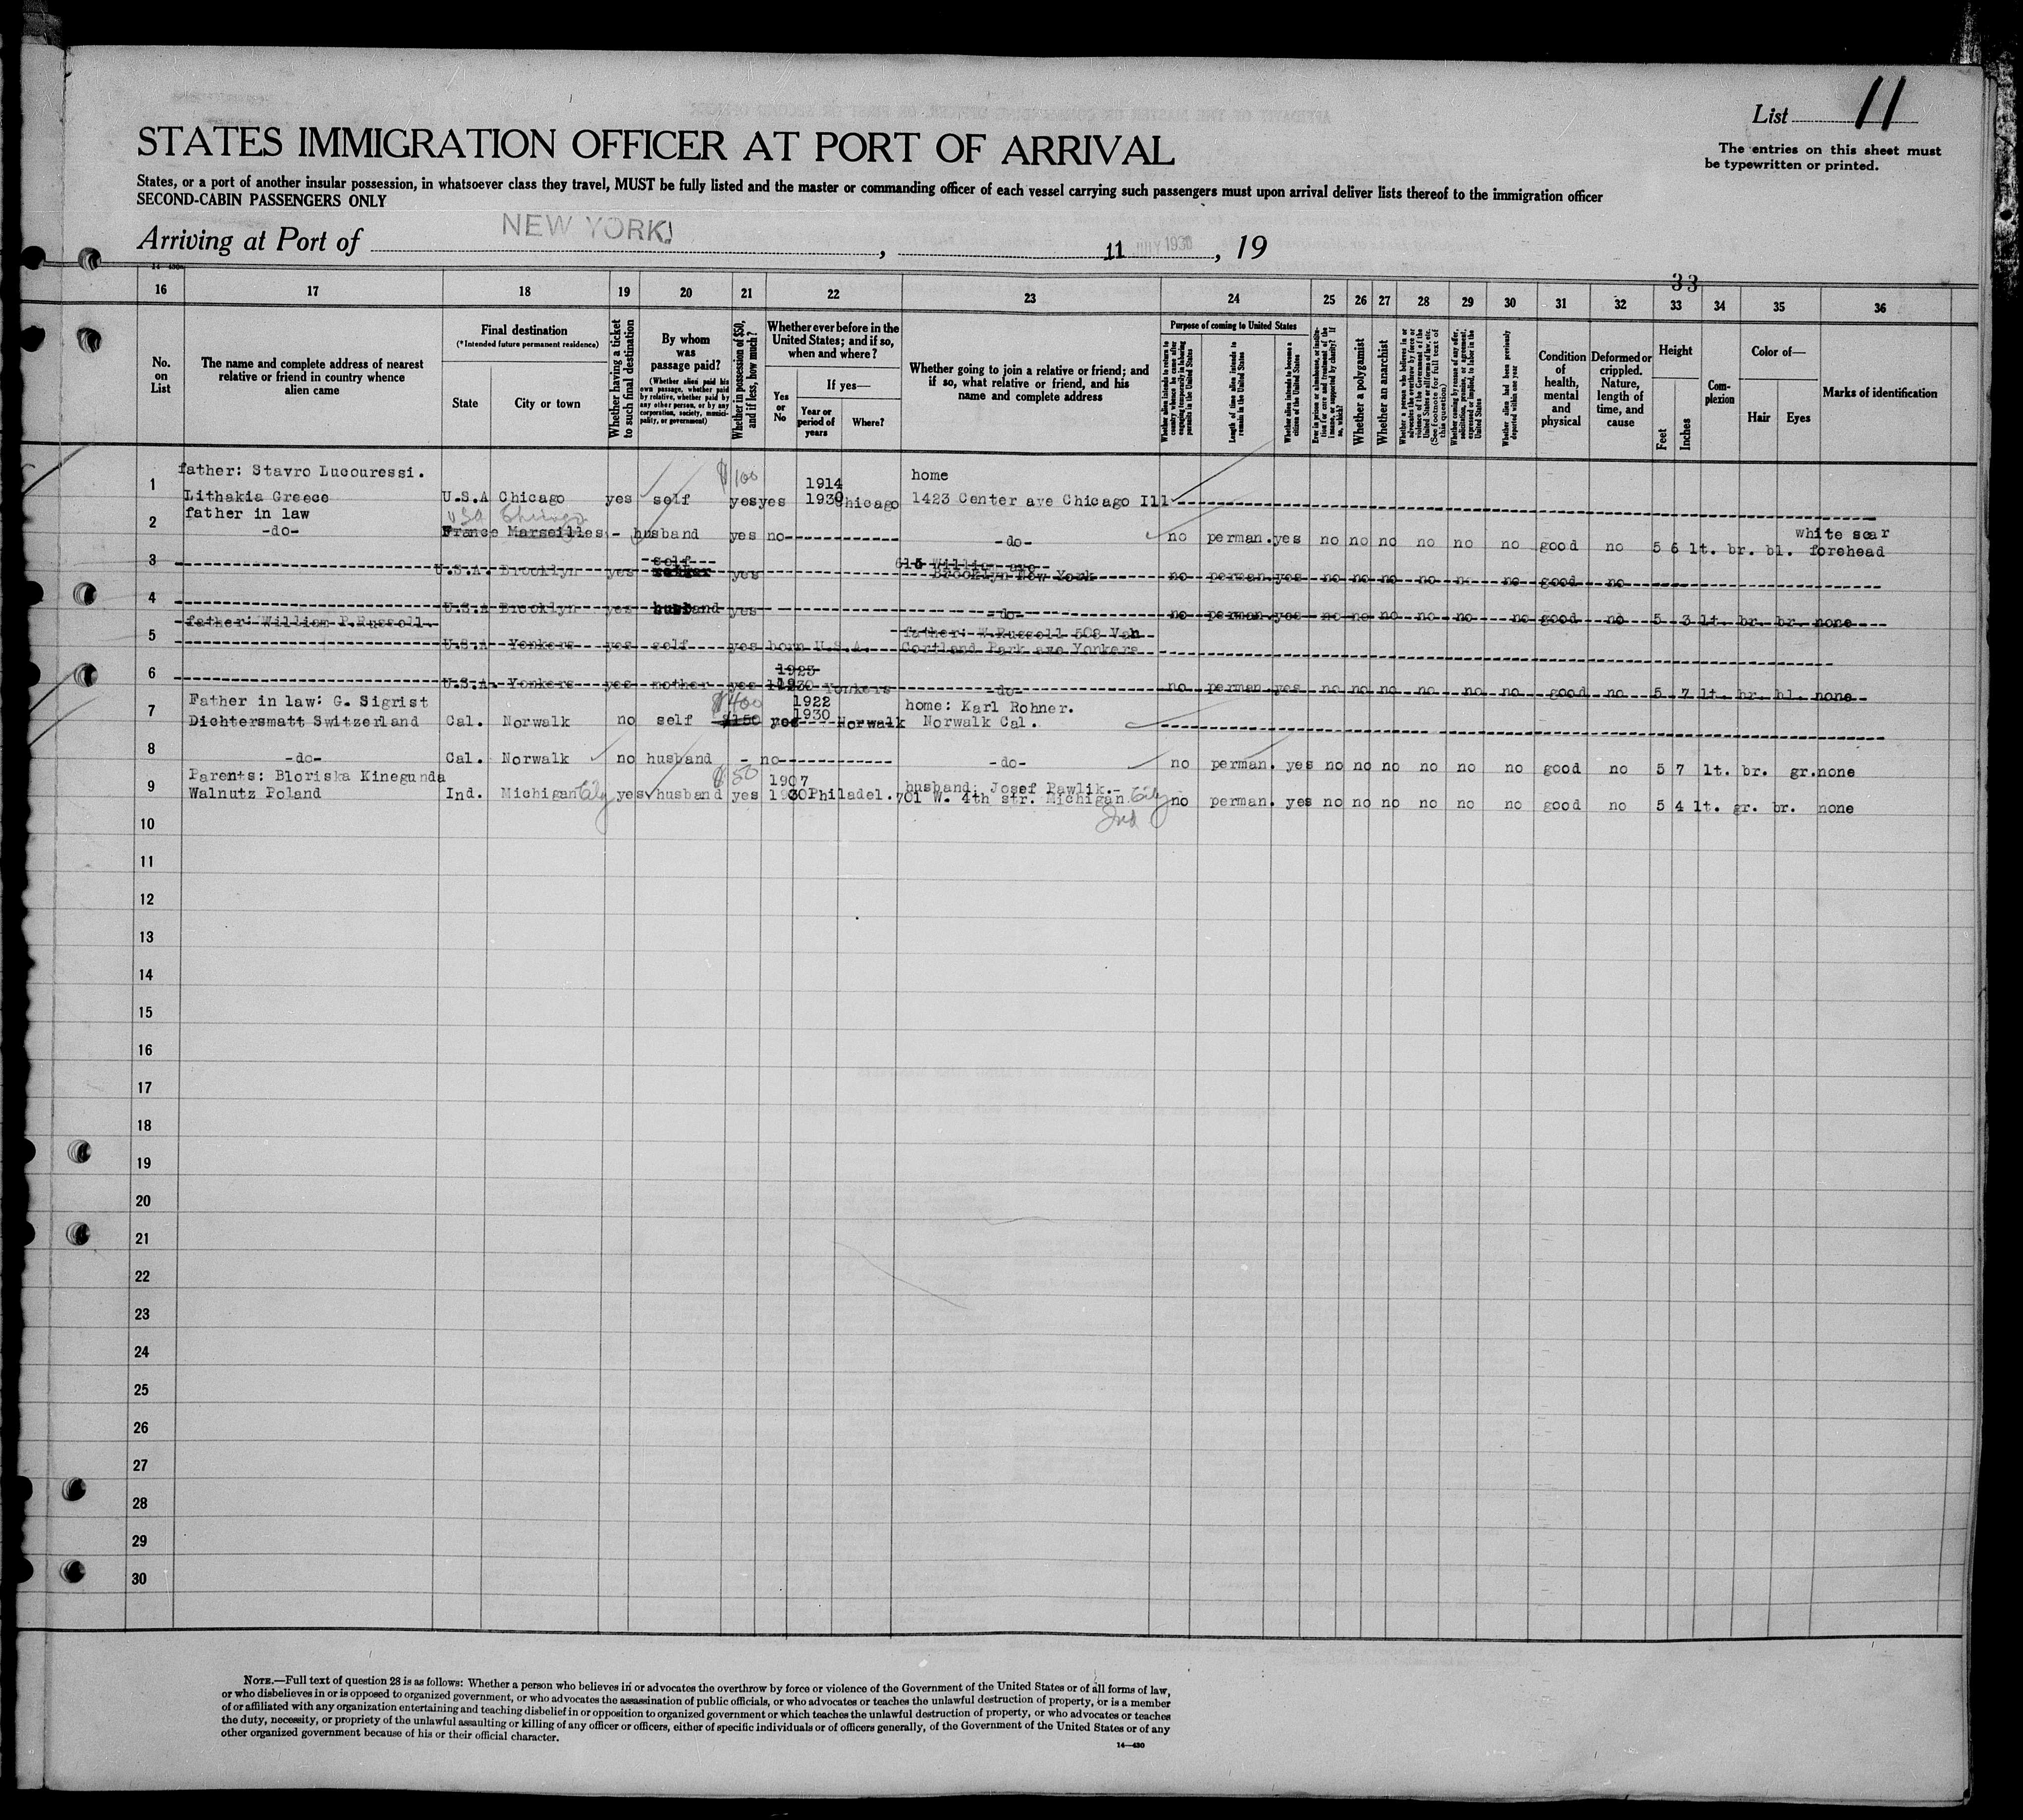 List 11
The entries on this sheet must
be typewritten or printed.
STATES IMMIGRATION OFFICER AT PORT OF ARRIVAL
States, or a port of another insular possession, in whatsoever class they travel, MUST be fully listed and the master or commanding officer of each vessel carrying such passengers must upon arrival deliver lists thereof to the immigration officer
SECOND-CABIN PASSENGERS ONLY
Arriving at Port of NEW YORK, 11 JULY 1930, 19
33
16 17 18 19 20 21 22 23 24 25 26 27 28 29 30 31 32 33 34 35 36
No. on List
The name and complete address of nearest relative or friend in country whence alien came
Final destination
(*Intended future permanent residence)
State
City or town
Whether having a ticket to such final destination
By whom was passage paid?
(Whether alien paid his own passage, whether paid by relative, whether paid by any other person, or by any corporation, society, municipality, or government)
Whether in possession of $50, and if less, how much?
Whether ever before in the United States; and if so, when and where?
Yes or No
If yes—
Year or period of years
Where?
Whether going to join a relative or friend; and if so, what relative or friend, and his name and complete address
Purpose of coming to United States
Whether alien intends to return to country whence he came after engaging temporarily in laboring pursuits in the United States
Length of time alien intends to remain in the United States
Whether alien intends to become a citizen of the United States
Ever in prison or almshouse, or institution for care and treatment of the insane, or supported by charity? If so, which?
Whether a polygamist
Whether an anarchist
Whether a person who believes in or advocates the overthrow by force or violence of the Government of the United States or all forms of law, etc. (See footnote for full text of this question)
Whether coming by reason of any offer, solicitation, promise, or agreement, expressed or implied, to labor in the United States
Whether alien had been previously deported within one year
Condition of health, mental and physical
Deformed or crippled. Nature, length of time, and cause
Height
Feet
Inches
Complexion
Color of—
Hair
Eyes
Marks of identification
father: Stavro Lucouressi. $100 1914 home
1 Lithakia Greece U.S.A Chicago yes self yes yes 1930 Chicago 1423 Center ave Chicago Ill
father in law USA Chicago white scar
2 -do- France Marseilles - husband yes no -do- no perman. yes no no no no no no good no 5 6 lt. br. bl. forehead
self 615 William ave
3 U.S.A. Brooklyn yes yes Brooklyn New York no perman yes no no no no n no good no
4 U.S.A Brooklyn yes husband yes -do- no perman yes no no no no no no good no 5 3 lt. br. br. none
father: William P.Russell. father: W.Russell 508 Van
5 U.S.A Yonkers yes self yes born U.S.A. Cortland Park ave Yonkers
1923
6 U.S.A. Yonkers yes mother yes 1930 Yonkers -do- no perman yes no no no no no no good no 5 7 lt. br. bl. none
Father in law: G. Sigrist $400 1922 home: Karl Rohner.
7 Dichtersmatt Switzerland Cal. Norwalk no self $150 yes 1930 Norwalk Norwalk Cal.
8 -do- Cal. Norwalk no husband - no -do- no perman. yes no no no no no no good no 5 7 lt. br. gr. none
Parents: Bloriska Kinegunda $50 1907 husband: Josef Pawlik.-
9 Walnutz Poland Ind. Michigan City yes husband yes 1930 Philadel. 701 W. 4th str. Michigan City no perman. yes no no no no no no good no 5 4 lt. gr. br. none
Ind
10
11
12
13
14
15
16
17
18
19
20
21
22
23
24
25
26
27
28
29
30
NOTE.—Full text of question 28 is as follows: Whether a person who believes in or advocates the overthrow by force or violence of the Government of the United States or of all forms of law,
or who disbelieves in or is opposed to organized government, or who advocates the assassination of public officials, or who advocates or teaches the unlawful destruction of property, or is a member
of or affiliated with any organization entertaining and teaching disbelief in or opposition to organized government or which teaches the unlawful destruction of property, or who advocates or teaches
the duty, necessity, or propriety of the unlawful assaulting or killing of any officer or officers, either of specific individuals or of officers generally, of the Government of the United States or of any
other organized government because of his or their official character.
14—430